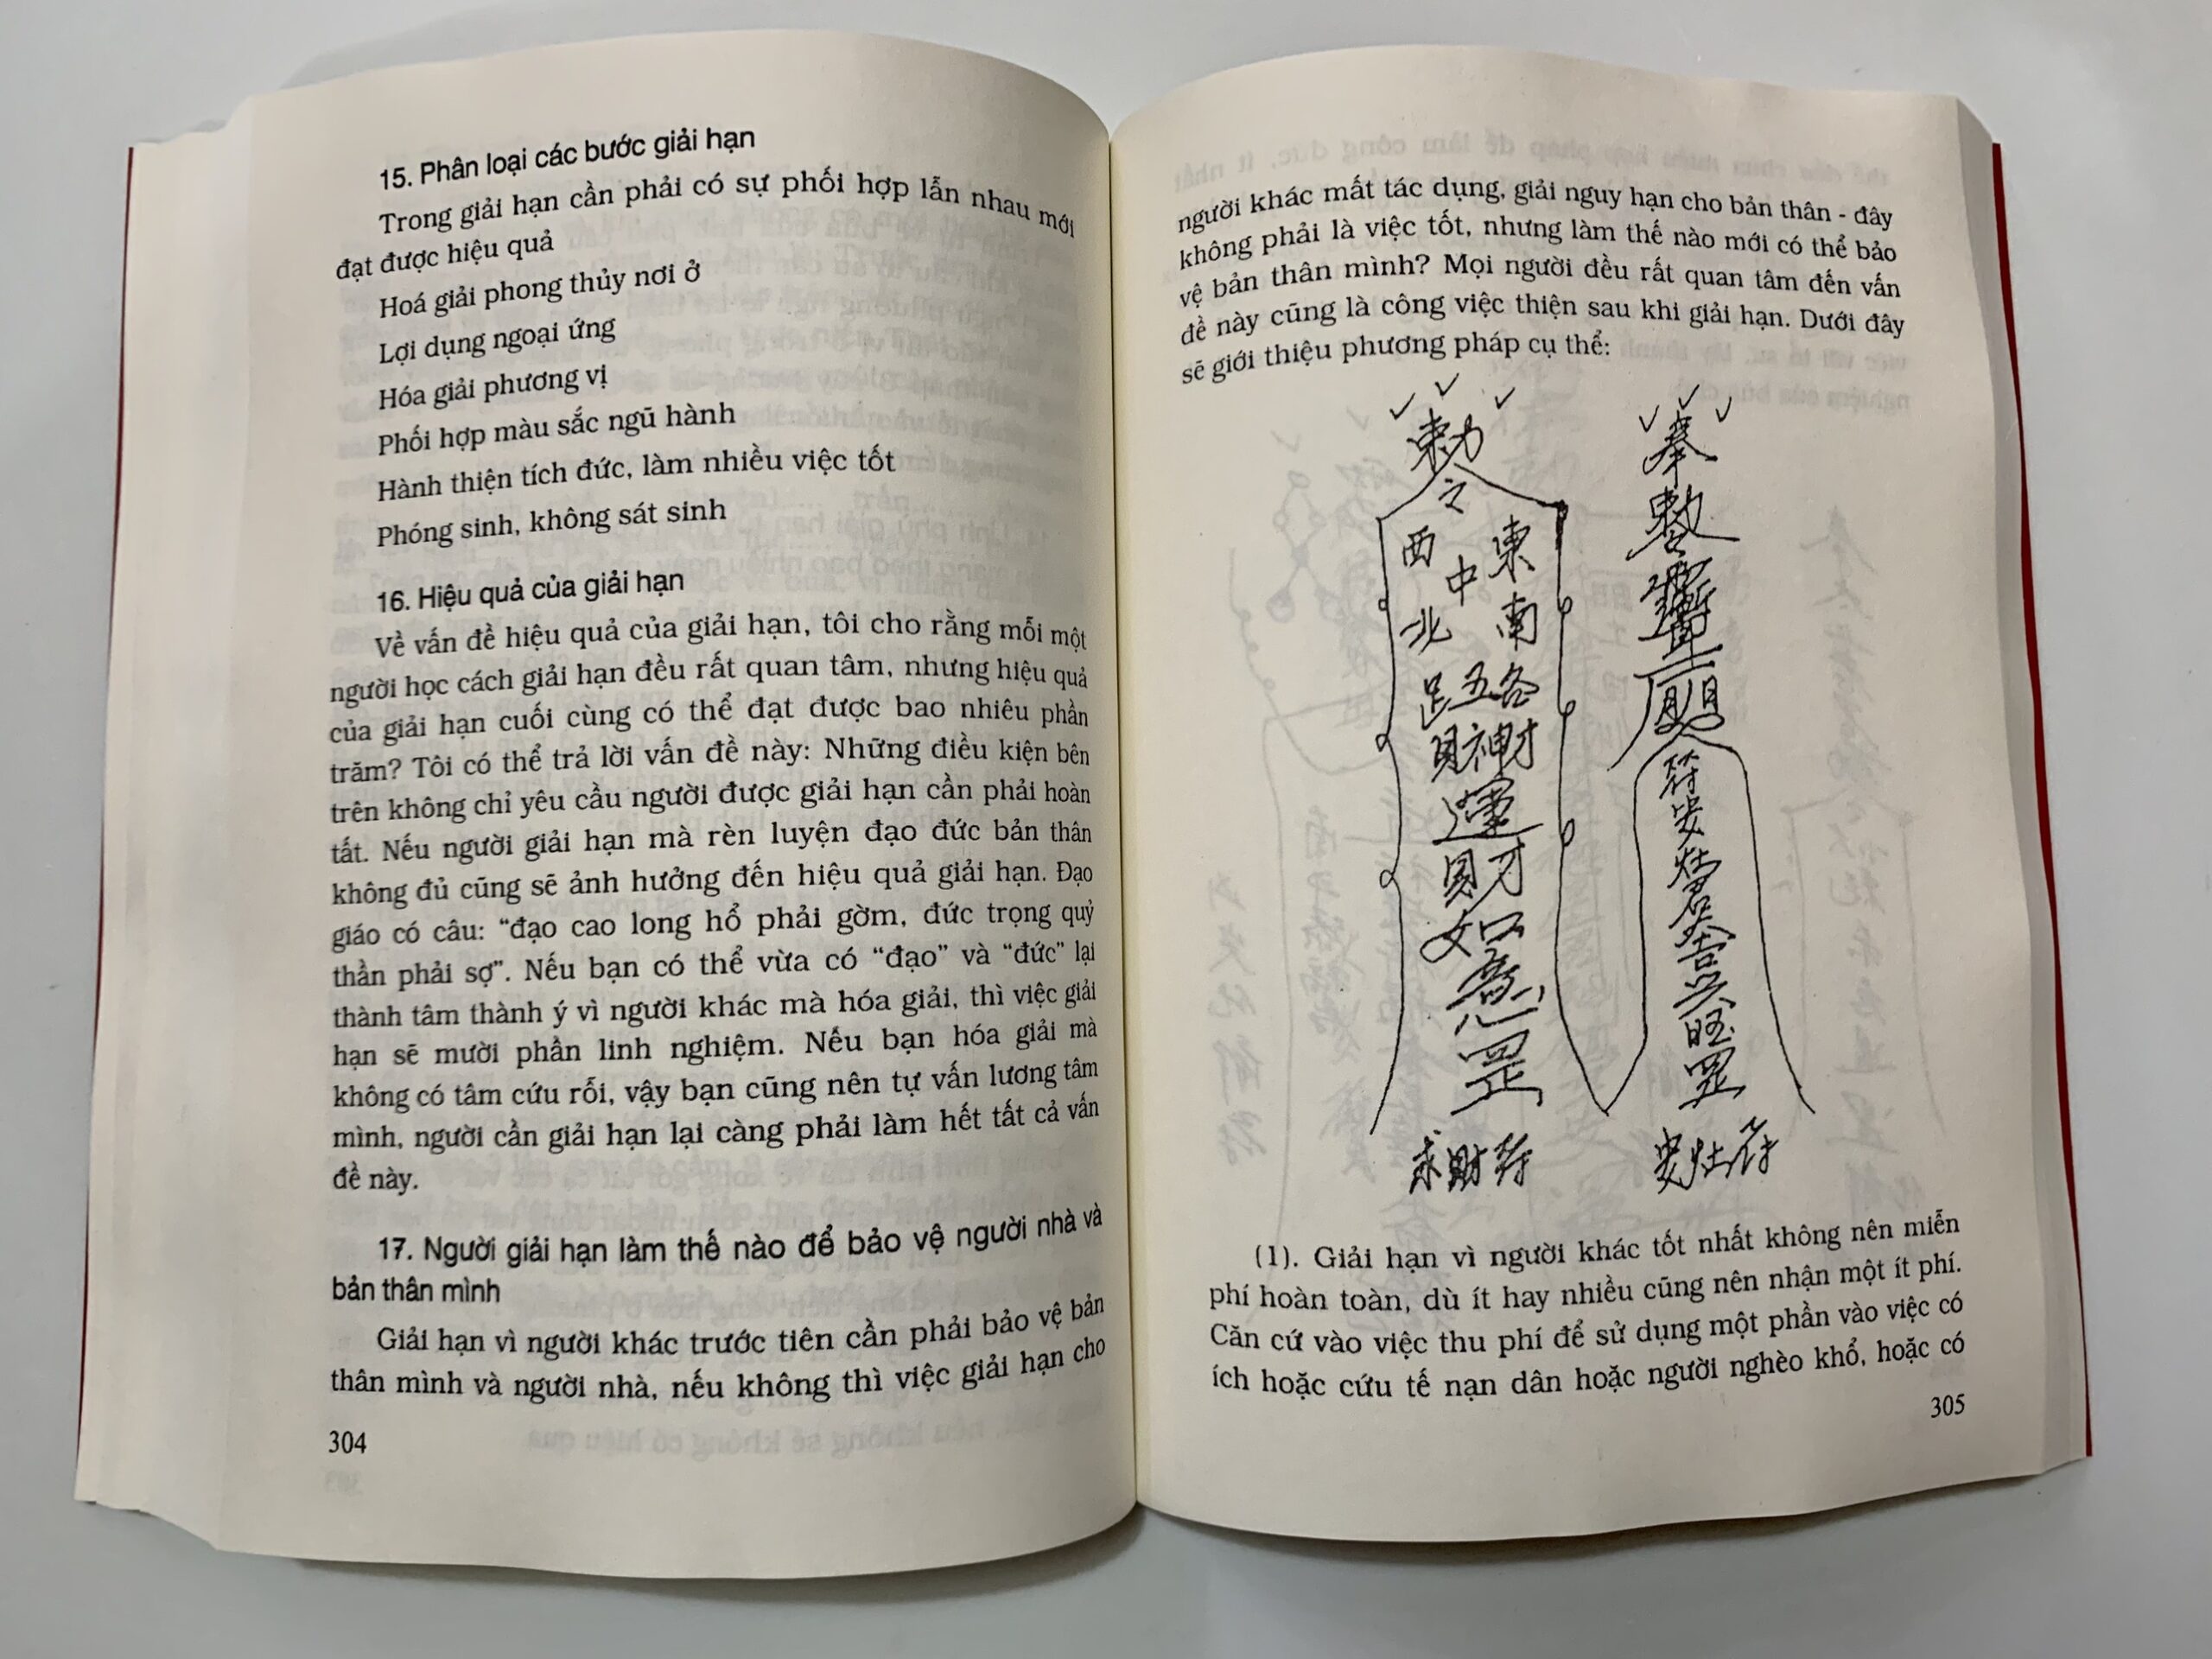 15. Phân loại các bước giải hạn
Trong giải hạn cần phải có sự phối hợp lẫn nhau mới
đạt được hiệu quả
Hoá giải phong thủy nơi ở
Lợi dụng ngoại ứng
Hóa giải phương vị
Phối hợp màu sắc ngũ hành
Hành thiện tích đức, làm nhiều việc tốt
Phóng sinh, không sát sinh
16. Hiệu quả của giải hạn
Về vấn đề hiệu quả của giải hạn, tôi cho rằng mỗi một
người học cách giải hạn đều rất quan tâm, nhưng hiệu quả
của giải hạn cuối cùng có thể đạt được bao nhiêu phần
trăm? Tôi có thể trả lời vấn đề này: Những điều kiện bên
trên không chỉ yêu cầu người được giải hạn cần phải hoàn
tất. Nếu người giải hạn mà rèn luyện đạo đức bản thân
không đủ cũng sẽ ảnh hưởng đến hiệu quả giải hạn. Đạo
giáo có câu: “đạo cao long hổ phải gờm, đức trọng quỷ
thần phải sợ”. Nếu bạn có thể vừa có “đạo” và “đức” lại
thành tâm thành ý vì người khác mà hóa giải, thì việc giải
hạn sẽ mười phần linh nghiệm. Nếu bạn hóa giải mà
không có tâm cứu rỗi, vậy bạn cũng nên tự vấn lương tâm
mình, người cần giải hạn lại càng phải làm hết tất cả vấn
đề này.
17. Người giải hạn làm thế nào để bảo vệ người nhà và
bản thân mình
Giải hạn vì người khác trước tiên cần phải bảo vệ bản
thân mình và người nhà, nếu không thì việc giải hạn cho
304
người khác mất tác dụng, giải nguy hạn cho bản thân - đây
không phải là việc tốt, nhưng làm thế nào mới có thể bảo
vệ bản thân mình? Mọi người đều rất quan tâm đến vấn
đề này cũng là công việc thiện sau khi giải hạn. Dưới đây
sẽ giới thiệu phương pháp cụ thể:
勅
令
西 中 東
北 南
五 各
財神
運
財
如
意
罡
求財符
奉
敕
符
安
灶
君
大
吉
興
旺
罡
安灶符
(1). Giải hạn vì người khác tốt nhất không nên miễn
phí hoàn toàn, dù ít hay nhiều cũng nên nhận một ít phí.
Căn cứ vào việc thu phí để sử dụng một phần vào việc có
ích hoặc cứu tế nạn dân hoặc người nghèo khổ, hoặc có
305